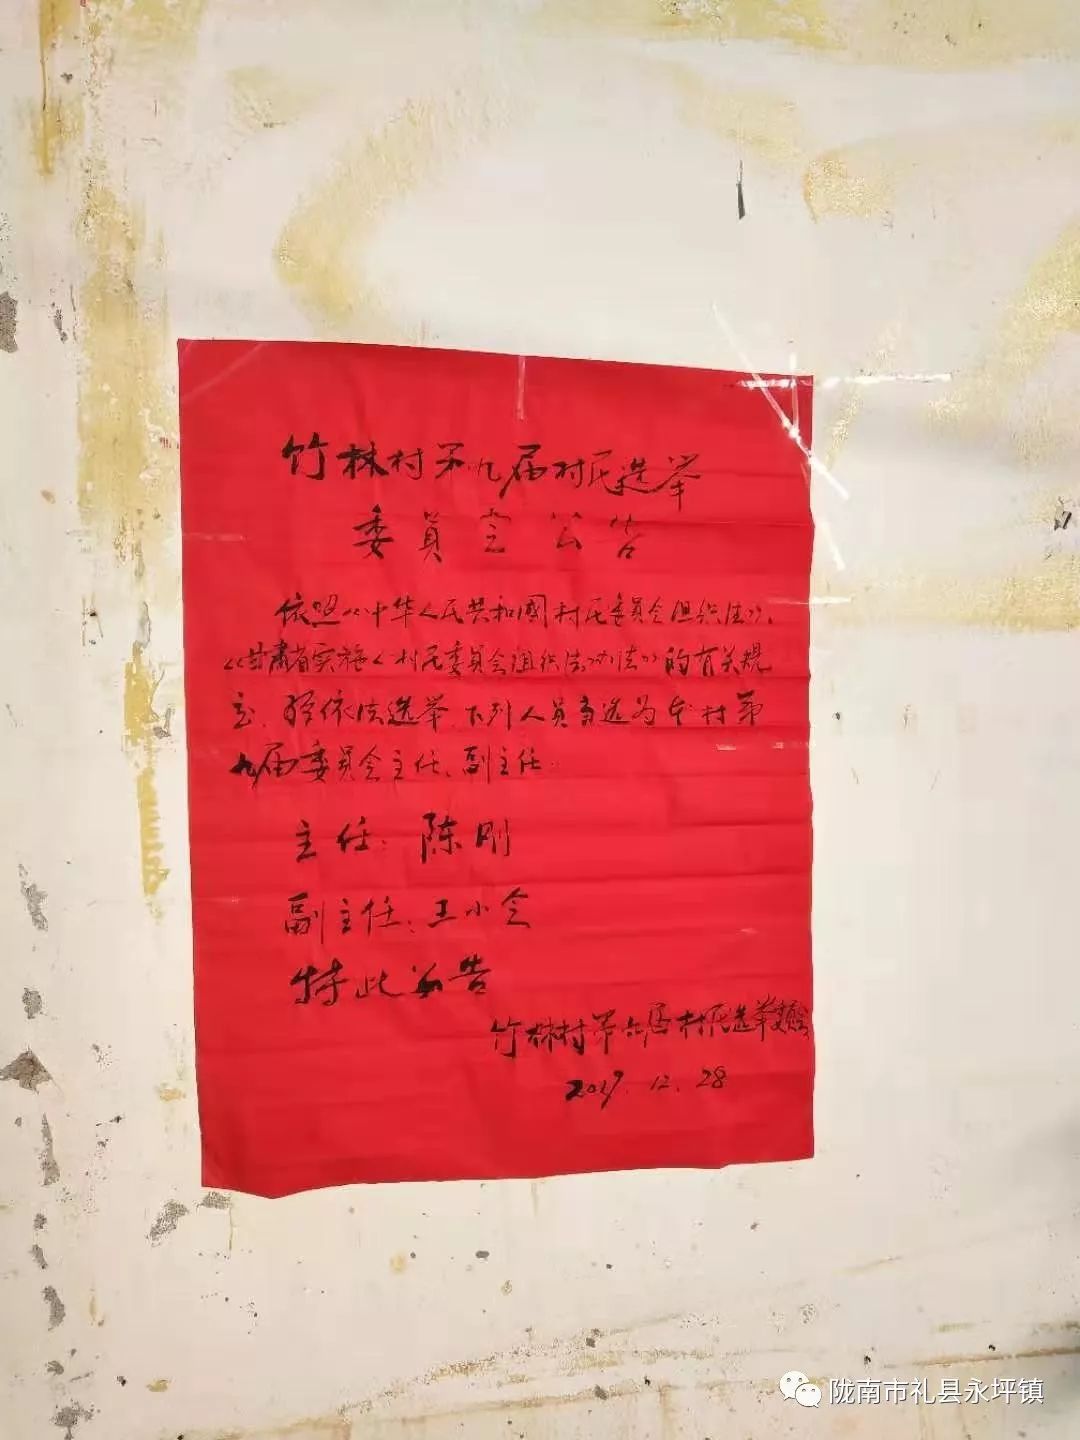 竹林村第九届村民选举
委员会公告
依照《中华人民共和國村民委员会组织法》、
《甘肃省实施〈村民委员会组织法〉办法》的有关规
定、经依法选举、下列人员当选为本村第
九届委员会主任、副主任.
主任：陈刚
副主任：王小会
特此公告
竹林村第九届村民选举委员会
2017.12.28
陇南市礼县永坪镇